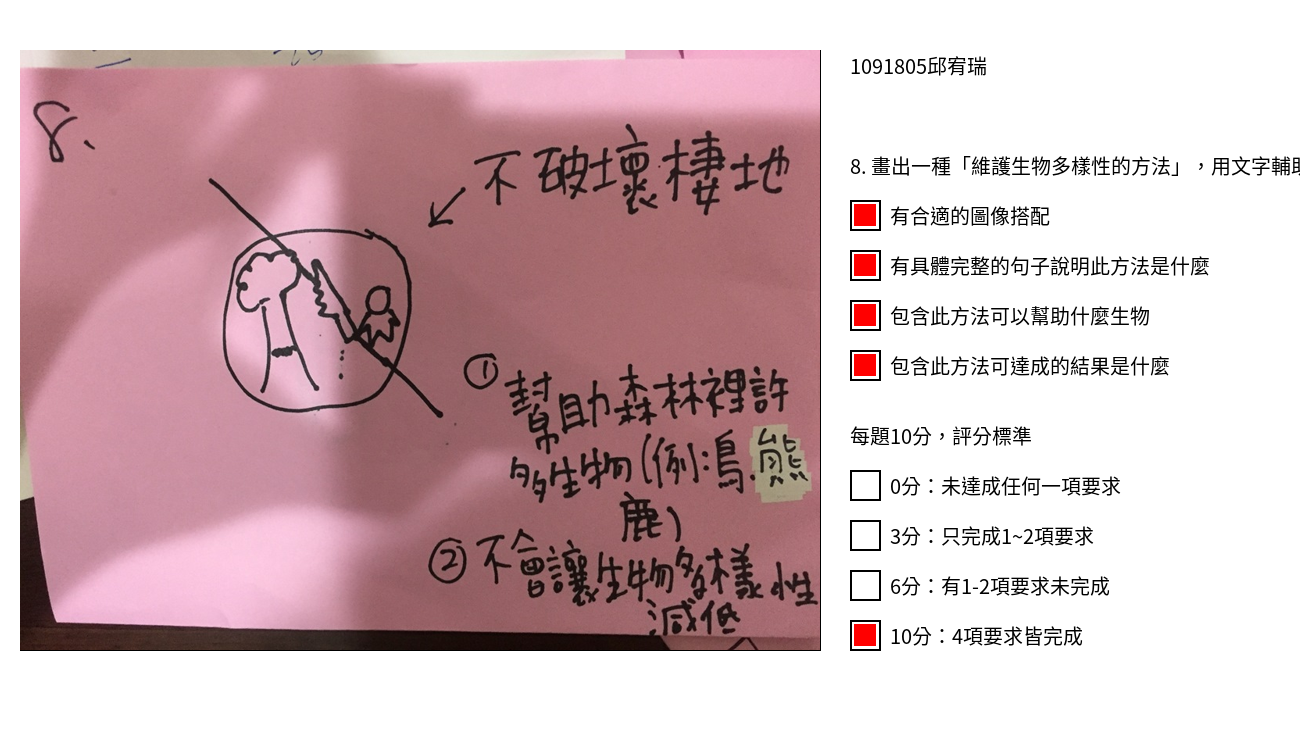 8.
不破壞棲地
① 幫助森林裡許
多生物(例:鳥.熊
鹿)
② 不會讓生物多樣性
減低
1091805邱宥瑞
8. 畫出一種「維護生物多樣性的方法」，用文字輔
有合適的圖像搭配
有具體完整的句子說明此方法是什麼
包含此方法可以幫助什麼生物
包含此方法可達成的結果是什麼
每題10分，評分標準
0分：未達成任何一項要求
3分：只完成1~2項要求
6分：有1-2項要求未完成
10分：4項要求皆完成